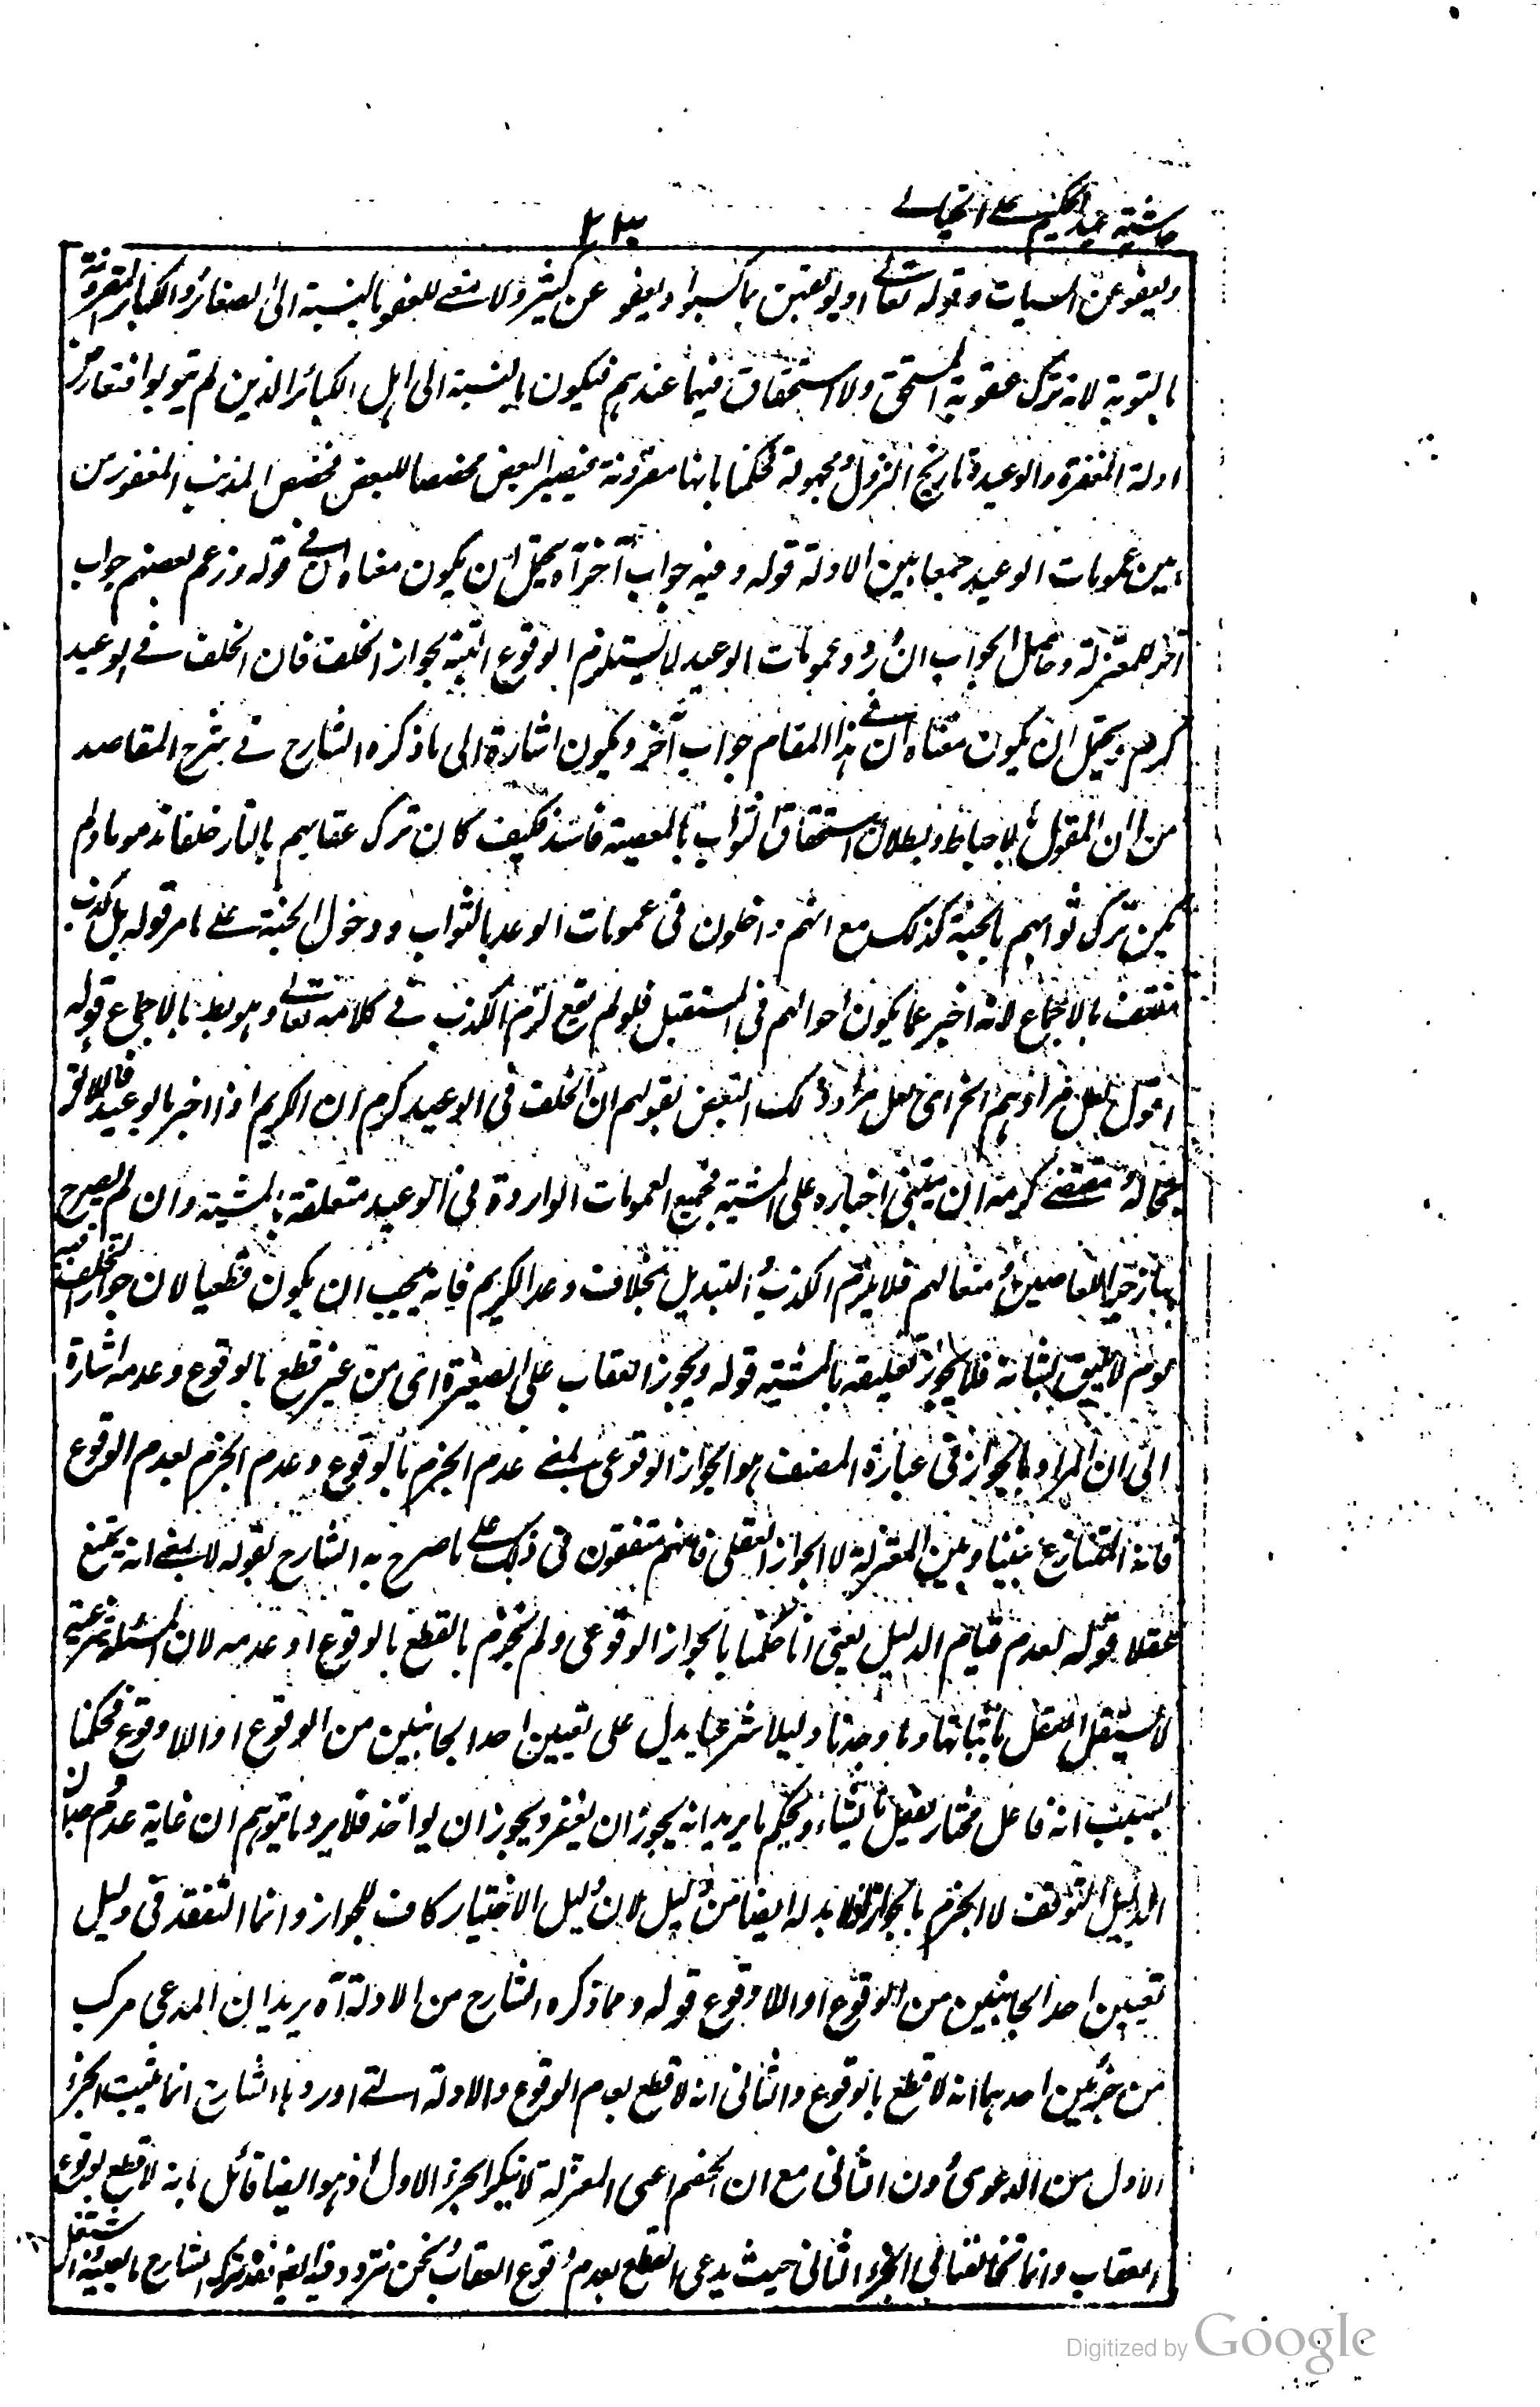 حاشية عبد الحكيم على الخيالى
٢٣
ويعفو عن السيات وقوله تعالى او يوبقهن بما كسبوا ويعفو عن كثير ولا معنى للعفو بالنسبة الى الصغائر والكبائر المقرونة
بالتوبة لانه ترك عقوبة المستحق ولا استحقاق فيهما عندهم فيكون بالنسبة الى اهل الكبائر الذين لم يتوبوا
ادلة المغفرة والوعيد تاريخ النزول مجهولة فحكمنا بانها مقرونة فيصير البعض مخصصا للبعض فخصص المذنب المغفور من
بين عمومات الوعيد جمعا بين الادلة قوله وفيه جواب آخر آه يحتمل ان يكون معناه ان فى قوله وزعم بعضهم جواب
آخر للمعتزلة وحاصل الجواب ان ورود عمومات الوعيد لا يستلزم الوقوع البتة بجواز الخلف فان الخلف فى الوعيد
كرم ويحتمل ان يكون معناه ان فى هذا المقام جواب آخر ويكون اشارة الى ما ذكره الشارح فى شرح المقاصد
من ان القول بالاحباط وبطلان استحقاق الثواب بالمعصية فاسد فكيف كان ترك عقابهم بالنار خلفا مذموما ولم
يكن ترك ثوابهم بالجنة كذلك مع انهم داخلون فى عمومات الوعد بالثواب ودخول الجنة على ما مر قوله بل كذب
منتف بالاجماع لانه اخبر عما يكون احوالهم فى المستقبل فلو لم يقع لزم الكذب فى كلامه تعالى وهو بط بالاجماع قوله
اقول لعل مرادهم الخ اى لعل مراد ذلك البعض بقولهم ان الخلف فى الوعيد كرم ان الكريم اذا اخبر بالوعيد فاللائق
بحاله ومقتضى كرمه ان يبتنى اخباره على المشية فجميع العمومات الواردة فى الوعيد متعلقة بالمشية وان لم يصرح
بها زجرا للعاصين ومنعا لهم فلا يلزم الكذب والتبديل بخلاف وعد الكريم فانه يجب ان يكون قطعيا لان جواز الخلف فيه
لوم لا يليق بشانه فلا يجوز تعليقه بالمشية قوله ويجوز العقاب على الصغيرة اى من غير قطع بالوقوع وعدمه اشارة
الى ان المراد بالجواز فى عبارة المصنف هو الجواز الوقوعى بمعنى عدم الجزم بالوقوع وعدم الجزم بعدم الوقوع
فانه المتنازع بيننا وبين المعتزلة لا الجواز العقلى فانهم متفقون فى ذلك على ما صرح به الشارح بقوله لا بمعنى انه يمتنع
عقلا قوله لعدم قيام الدليل يعنى انا حكمنا بالجواز الوقوعى ولم نجزم بالقطع بالوقوع او عدمه لان المسئلة شرعية
لا يستقل العقل باثباتها وما وجدنا دليلا شرعيا يدل على تعيين احد الجانبين من الوقوع او اللا وقوع فحكمنا
بسبب انه فاعل مختار يفعل ما يشاء ويحكم ما يريد انه يجوز ان يغفر ويجوز ان يواخذ فلا يرد ما يتوهم ان غاية عدم
الدليل التوقف لا الجزم بالجواز اذ لا بد له ايضا من دليل لان دليل الاختيار كاف للجواز وانما التفقد فى دليل
تعيين احد الجانبين من الوقوع او اللا وقوع قوله وما ذكره الشارح من الادلة آه يريد ان المدعى مركب
من جزئين احدهما انه لا قطع بالوقوع والثانى انه لا قطع بعدم الوقوع والادلة التى اوردها الشارح انما تثبت الجزء
الاول من الدعوى دون الثانى مع ان الخصم اعنى المعتزلة لا ينكر الجزء الاول اذ هو ايضا قائل بانه لا قطع بوقوع
العقاب وانما تخالفنا فى الجزء الثانى حيث يدعى القطع بعدم وقوع العقاب ونحن نتردد فيه
Digitized by Google